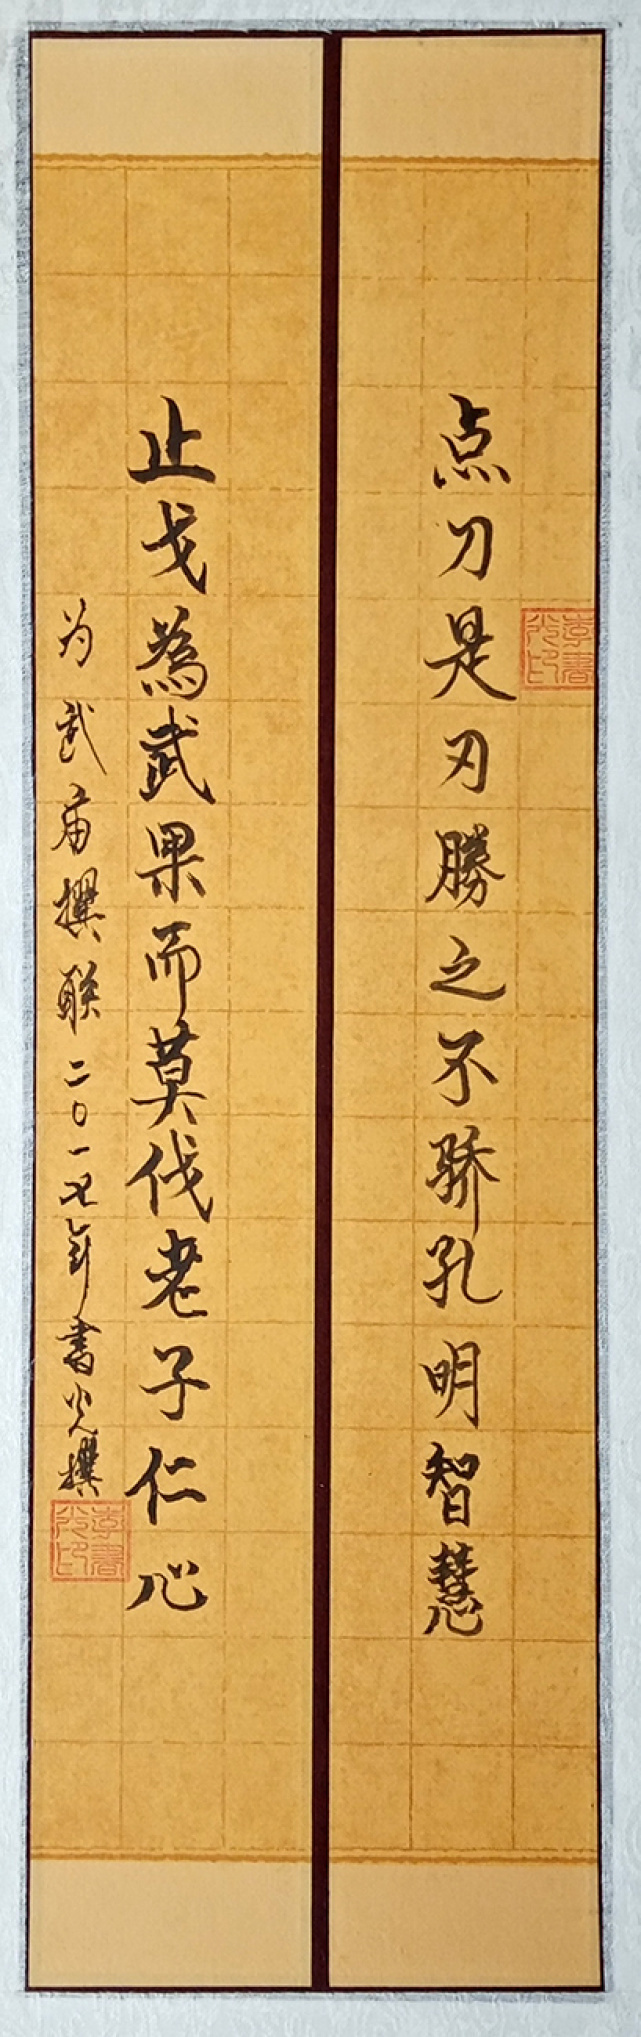 点刀是刃勝之不骄孔明智慧
止戈為武果而莫伐老子仁心
为武庙撰联二〇一七年書光撰
李書光印
李書光印